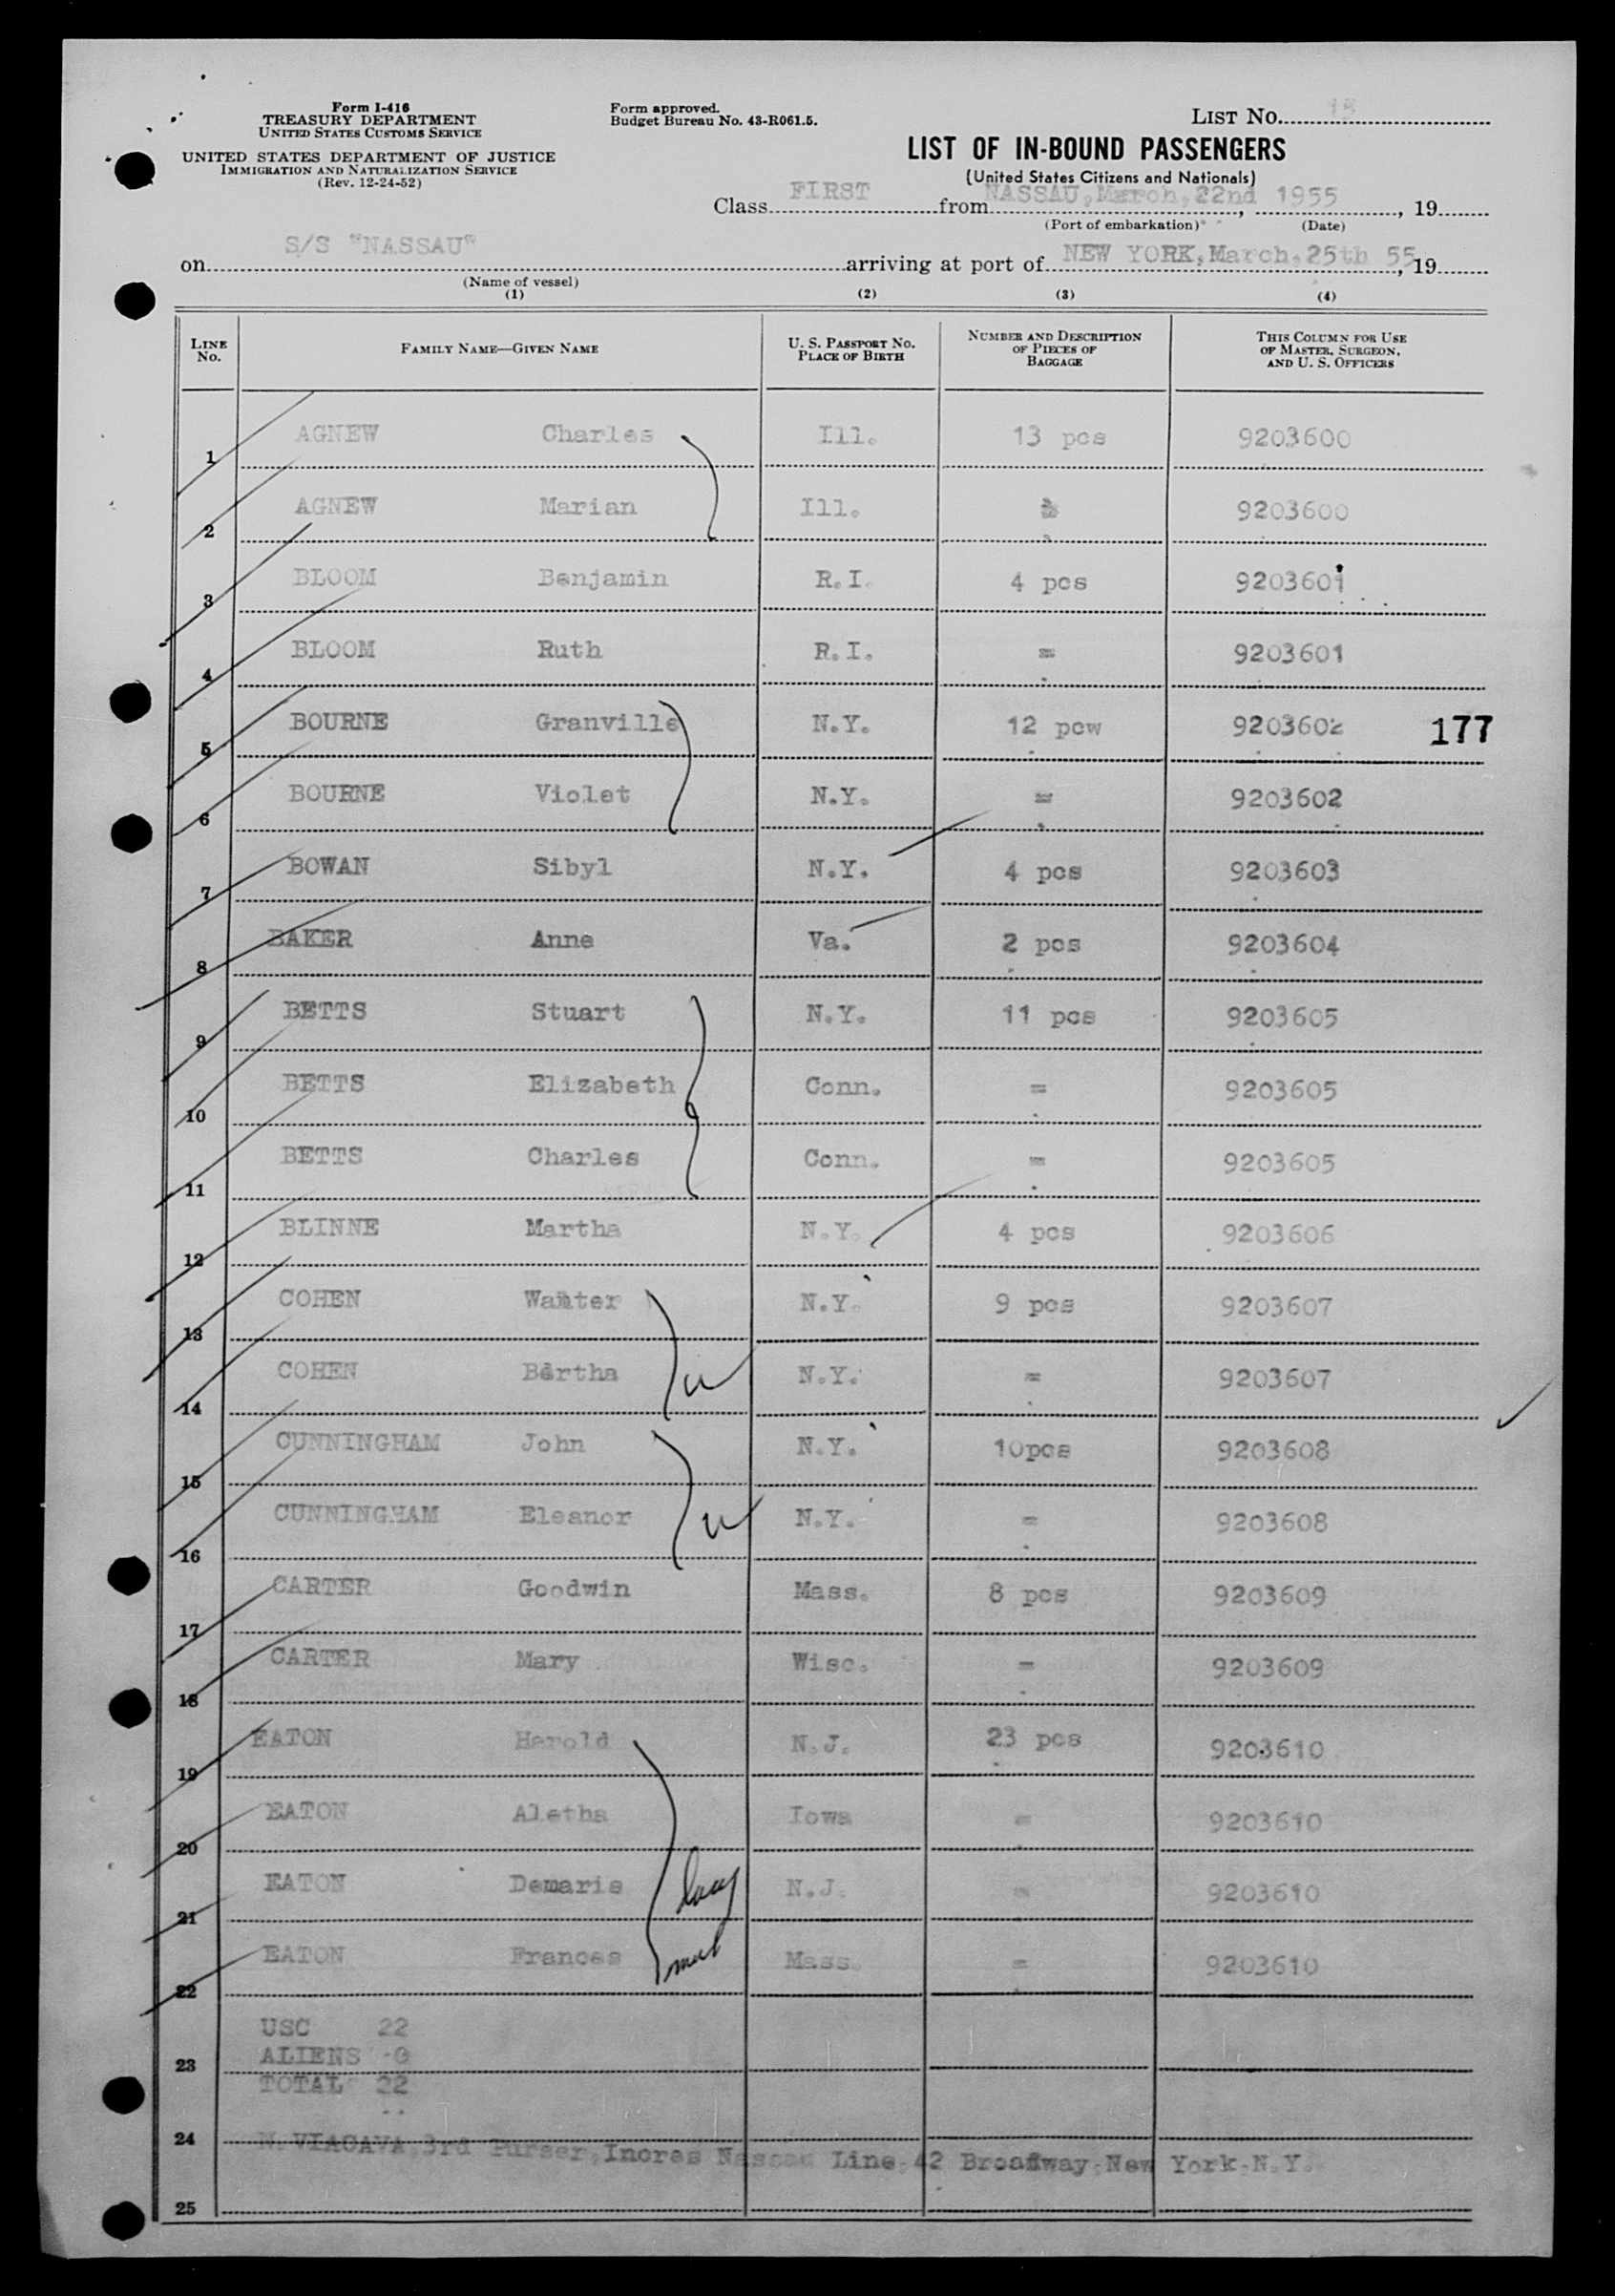 Form I-416
TREASURY DEPARTMENT
UNITED STATES CUSTOMS SERVICE
UNITED STATES DEPARTMENT OF JUSTICE
IMMIGRATION AND NATURALIZATION SERVICE
(Rev. 12-24-52)
Form approved.
Budget Bureau No. 43-R061.5.
LIST No. 18
LIST OF IN-BOUND PASSENGERS
(United States Citizens and Nationals)
Class FIRST from NASSAU, March, 22nd 1955, 19
(Port of embarkation) (Date)
on S/S "NASSAU" arriving at port of NEW YORK, March, 25th 55, 19
(Name of vessel)
(1) (2) (3) (4)
LINE No. FAMILY NAME—GIVEN NAME U. S. PASSPORT NO. PLACE OF BIRTH NUMBER AND DESCRIPTION OF PIECES OF BAGGAGE THIS COLUMN FOR USE OF MASTER, SURGEON, AND U. S. OFFICERS
1 AGNEW Charles Ill. 13 pcs 9203600
2 AGNEW Marian Ill. 9203600
3 BLOOM Benjamin R.I. 4 pcs 9203601
4 BLOOM Ruth R.I. = 9203601
5 BOURNE Granville N.Y. 12 pcw 9203602 177
6 BOURNE Violet N.Y. = 9203602
7 BOWAN Sibyl N.Y. 4 pcs 9203603
8 BAKER Anne Va. 2 pcs 9203604
9 BETTS Stuart N.Y. 11 pcs 9203605
10 BETTS Elizabeth Conn. = 9203605
11 BETTS Charles Conn. = 9203605
12 BLINNE Martha N.Y. 4 pcs 9203606
13 COHEN N.Y. 9 pcs 9203607
14 COHEN Bertha N.Y. = 9203607
15 CUNNINGHAM John N.Y. 10pcs 9203608
16 CUNNINGHAM Eleanor N.Y. = 9203608
17 CARTER Goodwin Mass. 8 pcs 9203609
18 CARTER Mary Wisc. = 9203609
19 EATON Harold N.J. 23 pcs 9203610
20 EATON Aletha Iowa = 9203610
21 EATON Demaris N.J. = 9203610
22 EATON Frances Mass. = 9203610
USC 22
23 ALIENS -0
TOTAL 22
24 N. VIACAVA, 3rd Purser, Incres Nassau Line, 42 Broadway, New York, N.Y.
25